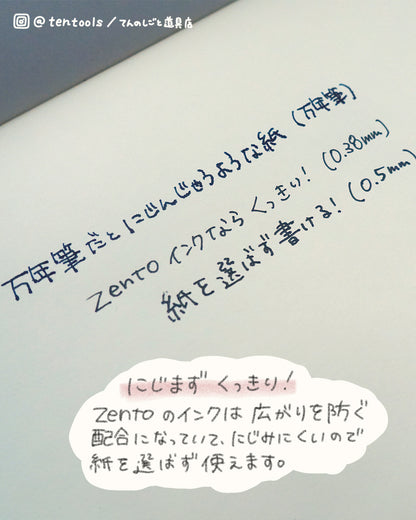 @tentools/てんのしごと道具店
万年筆だとにじんじゃうような紙(万年筆)
Zentoインクならくっきり!(0.38mm)
紙を選ばず書ける!(0.5mm)
にじまずくっきり!
Zentoのインクは広がりを防ぐ
配合になっていて、にじみにくいので
紙を選ばず使えます。